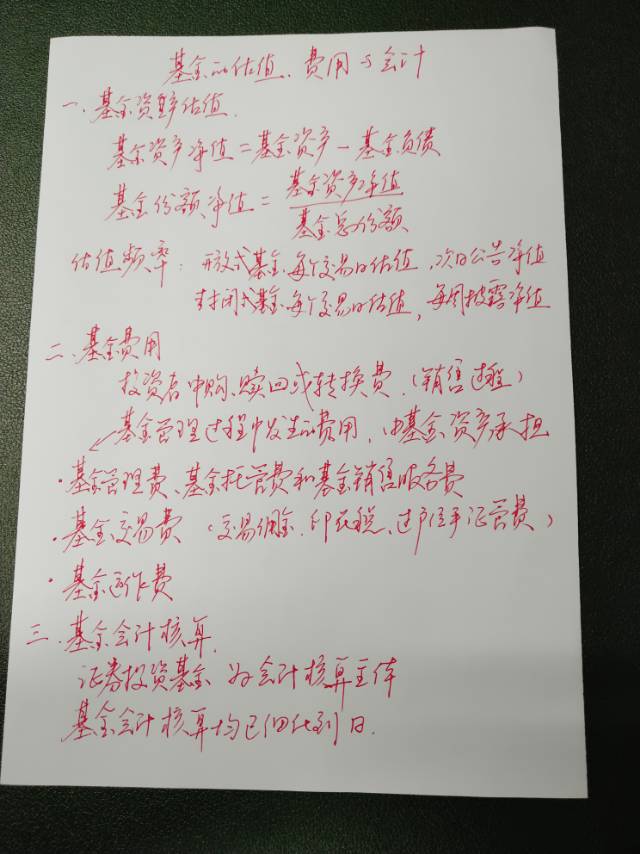 基金的估值、费用与会计
一、基金资产估值
基金资产净值=基金资产-基金负债
基金份额净值=基金资产净值/基金总份额
估值频率:开放式基金每个交易日估值,次日公告净值
封闭式基金每个交易日估值,每周披露净值
二、基金费用
投资者申购、赎回或转换费(销售过程)
基金管理过程中发生的费用,由基金资产承担
·基金管理费、基金托管费和基金销售服务费
·基金交易费(交易佣金、印花税、过户经手证管费)
·基金运作费
三、基金会计核算
证券投资基金为会计核算主体
基金会计核算均已细化到日.